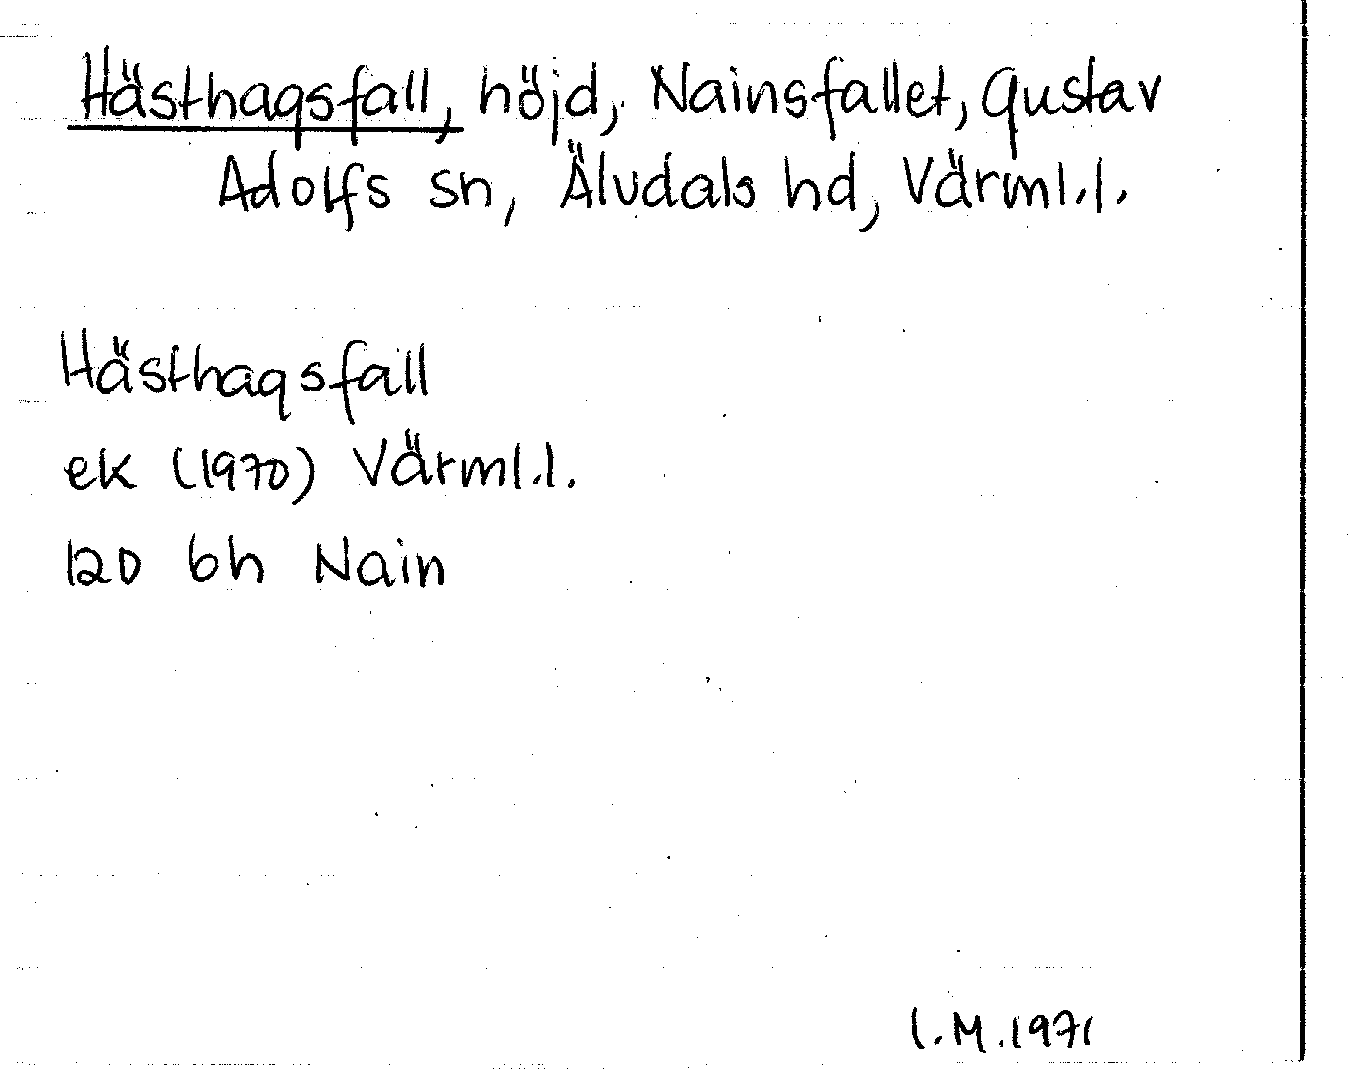 Hästhagsfall, höjd, Nainsfallet, Gustav
Adolfs sn, Älvdals hd, Värml.l.
Hästhagsfall
ek (1970) Värml.l.
12D 6h Nain
I.M.1971